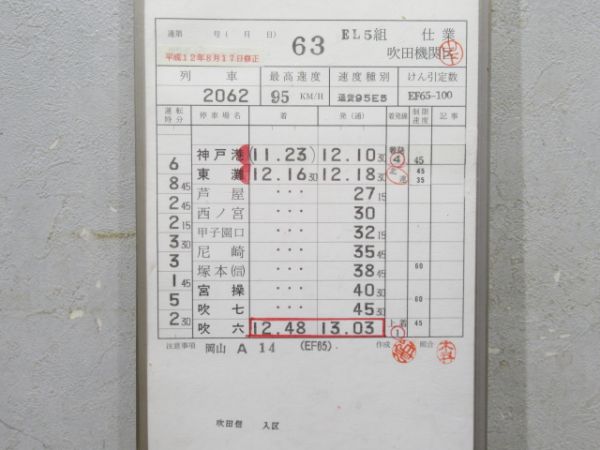 達第 号( 月 日) 63 EL5組 仕業
平成12年8月17日修正 吹田機関区
列車 最高速度 速度種別 けん引定数
2062 95 KM/H 通貨95E5 EF65-100
運転時分 停車場名 着 発(通) 着発線 制限速度 記事
神戸港 (11.23) 12.10 30 着発 4 45
6 東灘 12.16 30 12.18 30 45 35
8 45 芦屋 ・・・ 27 15
2 45 西ノ宮 ・・・ 30
2 15 甲子園口 ・・・ 32 15
3 30 尼崎 ・・・ 35 45
3 塚本(信) ・・・ 38 45 60
1 45 宮操 ・・・ 40 30
5 吹七 ・・・ 45 30 60
2 30 吹六 12.48 13.03 上着 1 45
注意事項 岡山 A 14 (EF65) 作成 照合
吹田信 入区